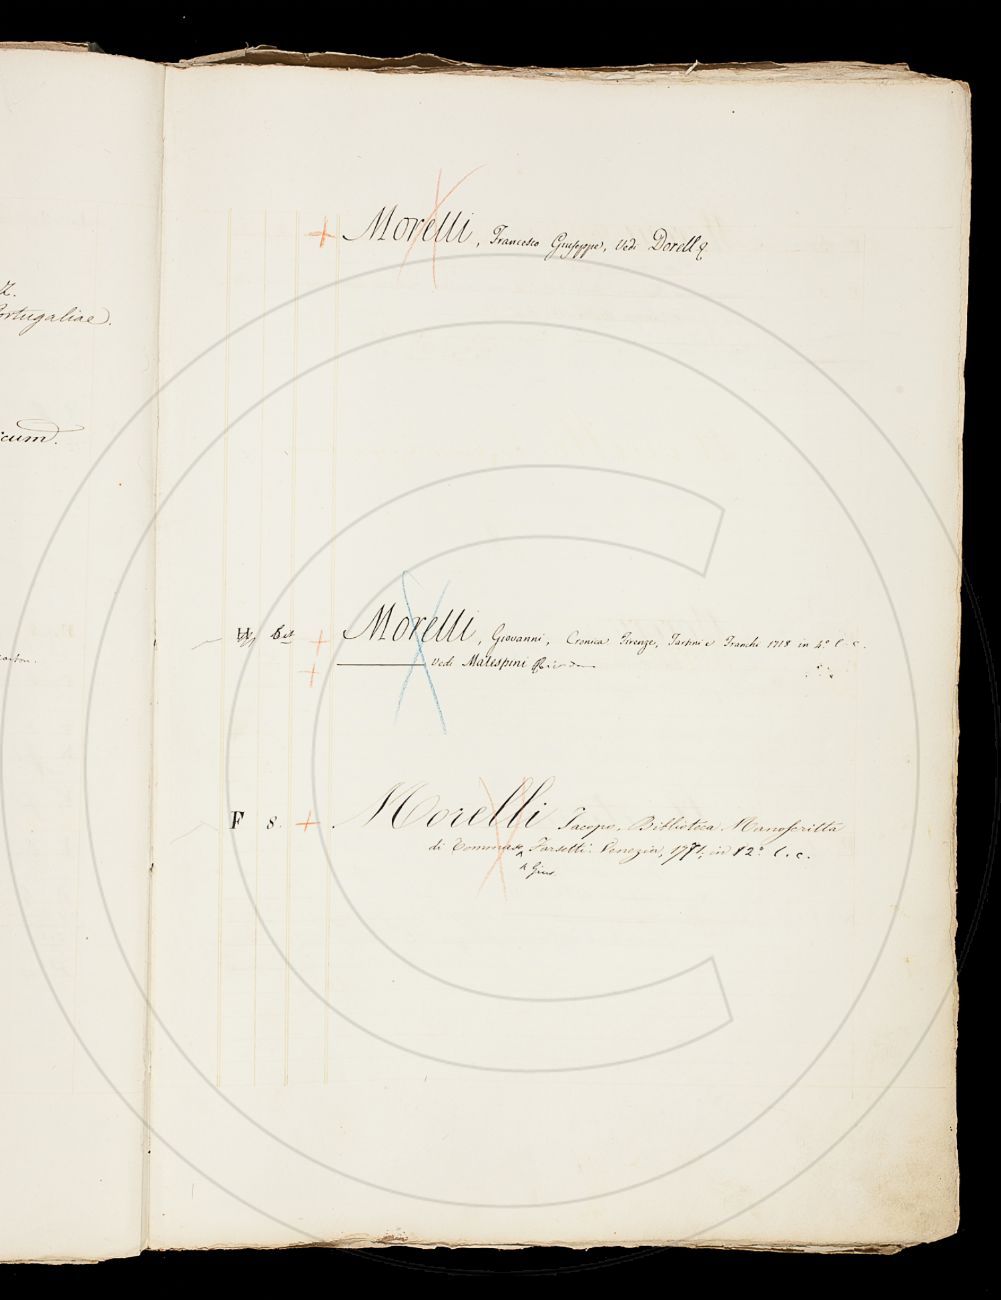 Portugaliae.
Morelli, Francesco Giuseppe, Vedi Dorell
Morelli, Giovanni, Cronica Firenze, Tartini e Franchi 1718 in 4.° l. c.
Vedi Malespini
F 8. Morelli Jacopo, Biblioteca Manoscritta
di Tommaso Farsetti. Venezia, 1771, in 12.° l. c.
Gius